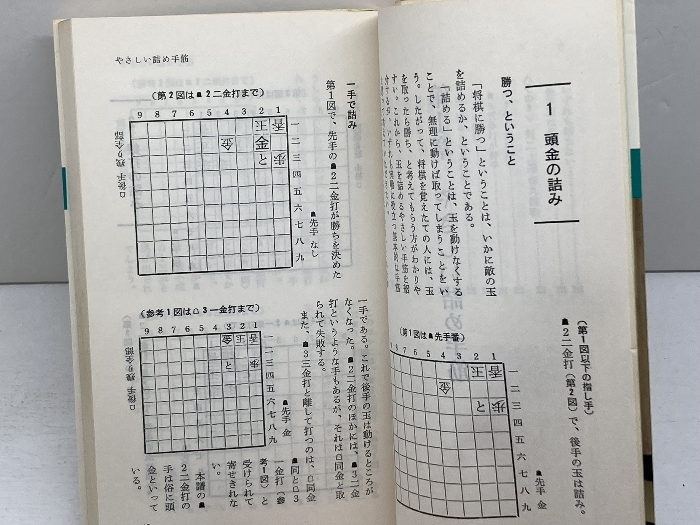 1 頭金の詰み
勝つ、ということ
「将棋に勝つ」ということは、いかに敵の玉
を詰めるか、ということである。
「詰める」ということは、玉を動けなくする
ことで、無理に動けば取ってしまうことをい
う。したがって、将棋を覚えたての人には、玉
を取ったら勝ち、と考えてもらう方がわかりや
すい。これから、玉を詰めるやさしい手筋を紹
(第1図は☗先手番)
7 6 5 4 3 2 1
香 玉 金 歩 と
一二三四五六七八九
☗先手 金
(第1図以下の指し手)
☗2二金打(第2図)で、後手の玉は詰み。
やさしい詰め手筋
(第2図は☗2二金打まで)
9 8 7 6 5 4 3 2 1
香 玉 金 金 歩 と
一二三四五六七八九
☗先手 なし
☖後手 残り全部
一手で詰み
第1図で、先手の☗2二金打が勝ちを決めた
一手である。これで後手の玉は動けるところが
なくなった。☗2二金打のほかには、☗3二金
打というような手もあるが、それは☖同金と取
られて失敗する。
また、☗3三金打と離して打つのは、☖同金
☗同と☖3
一金打(参
考1図)と
受けられて
寄せきれな
い。
本譜の☗
2二金打の
手は俗に頭
金といって
いる。
(参考1図は☖3一金打まで)
9 8 7 6 5 4 3 2 1
香 玉 金 歩 と
一二三四五六七八九
☗先手 金
☖後手 残り全部